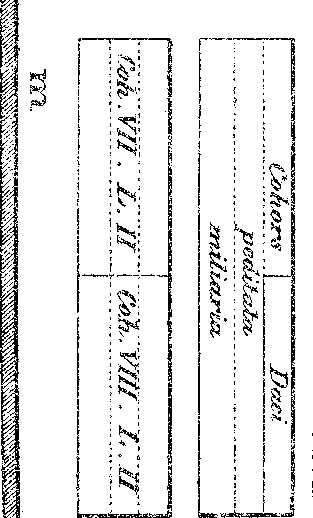 Cohors Daci
peditata
miliaria
Coh. VII. L. II Coh. VIII. L. II
m